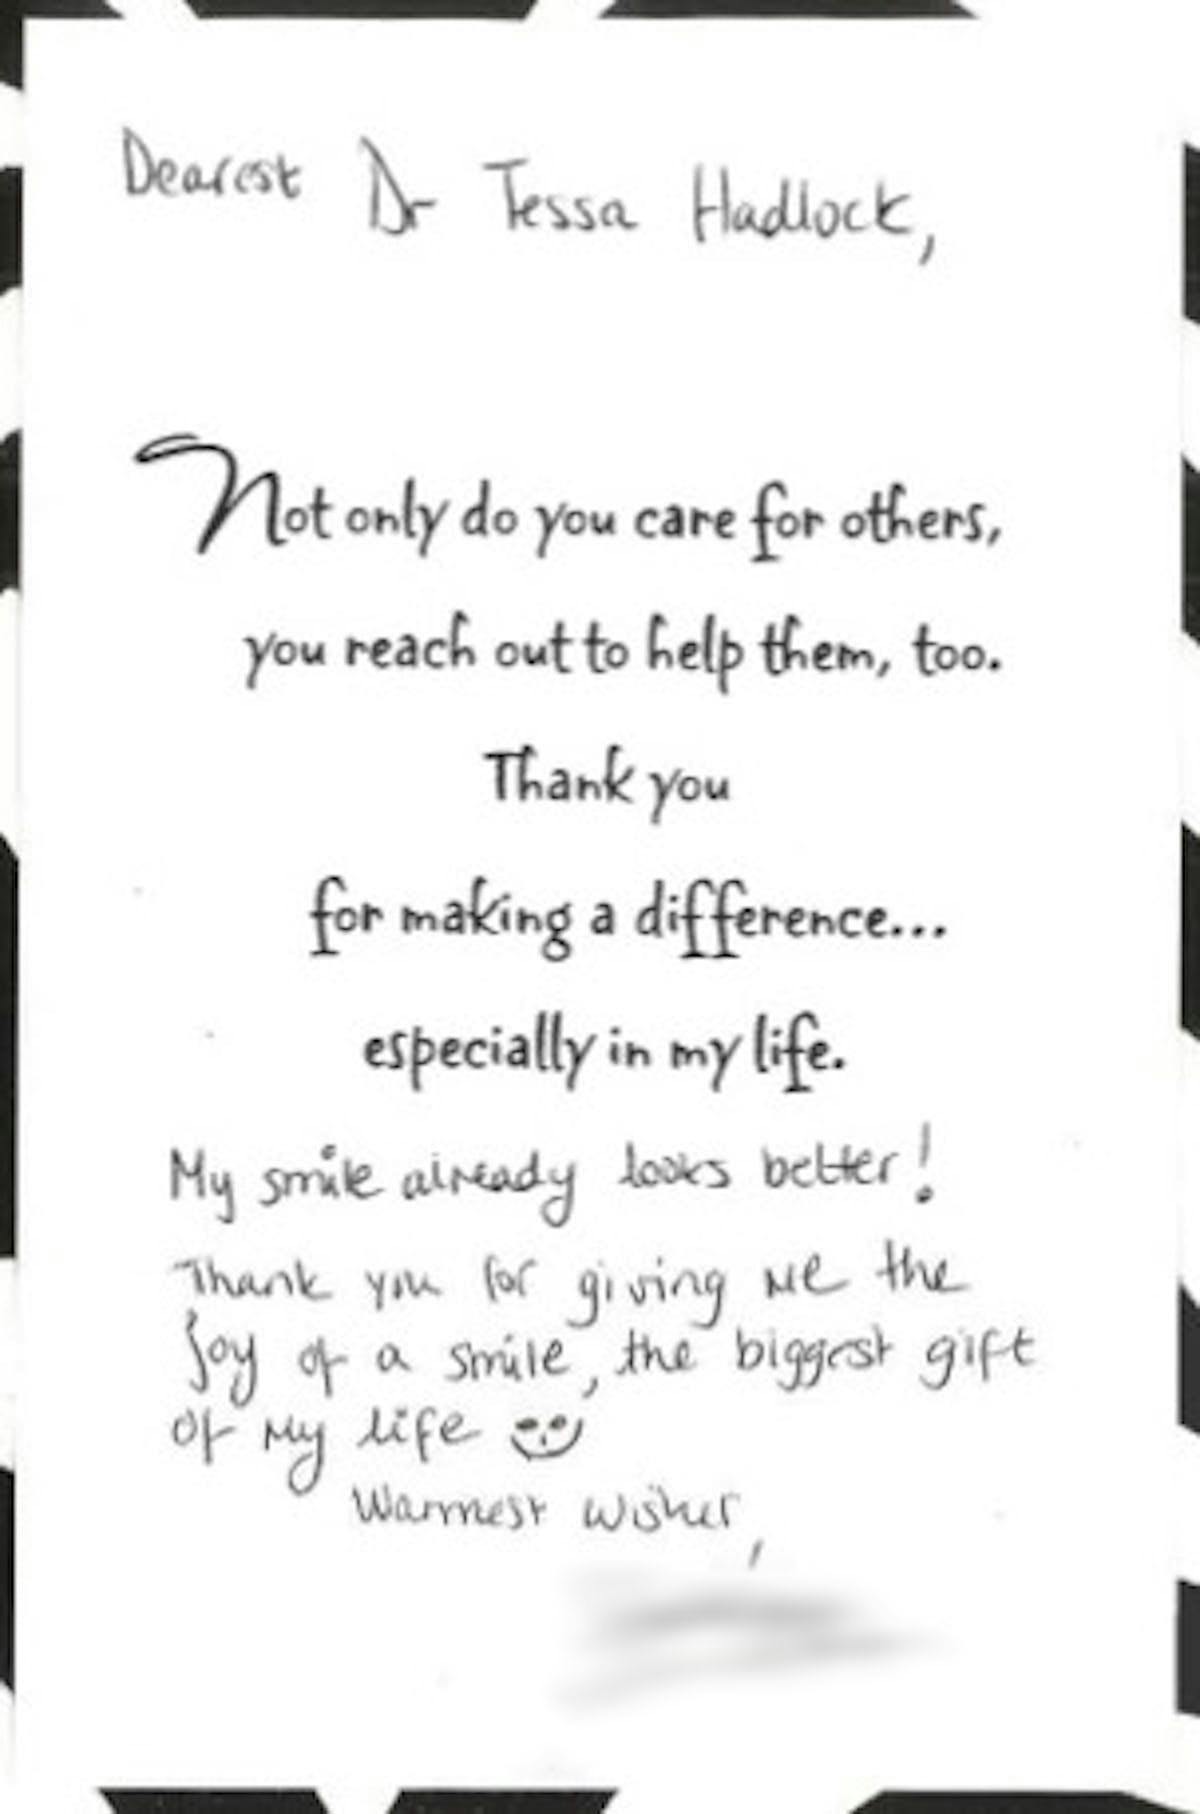 Dearest Dr Tessa Hadlock,
Not only do you care for others,
you reach out to help them, too.
Thank you
for making a difference...
especially in my life.
My smile already looks better!
Thank you for giving me the
joy of a smile, the biggest gift
of my life
Warmest wishes,